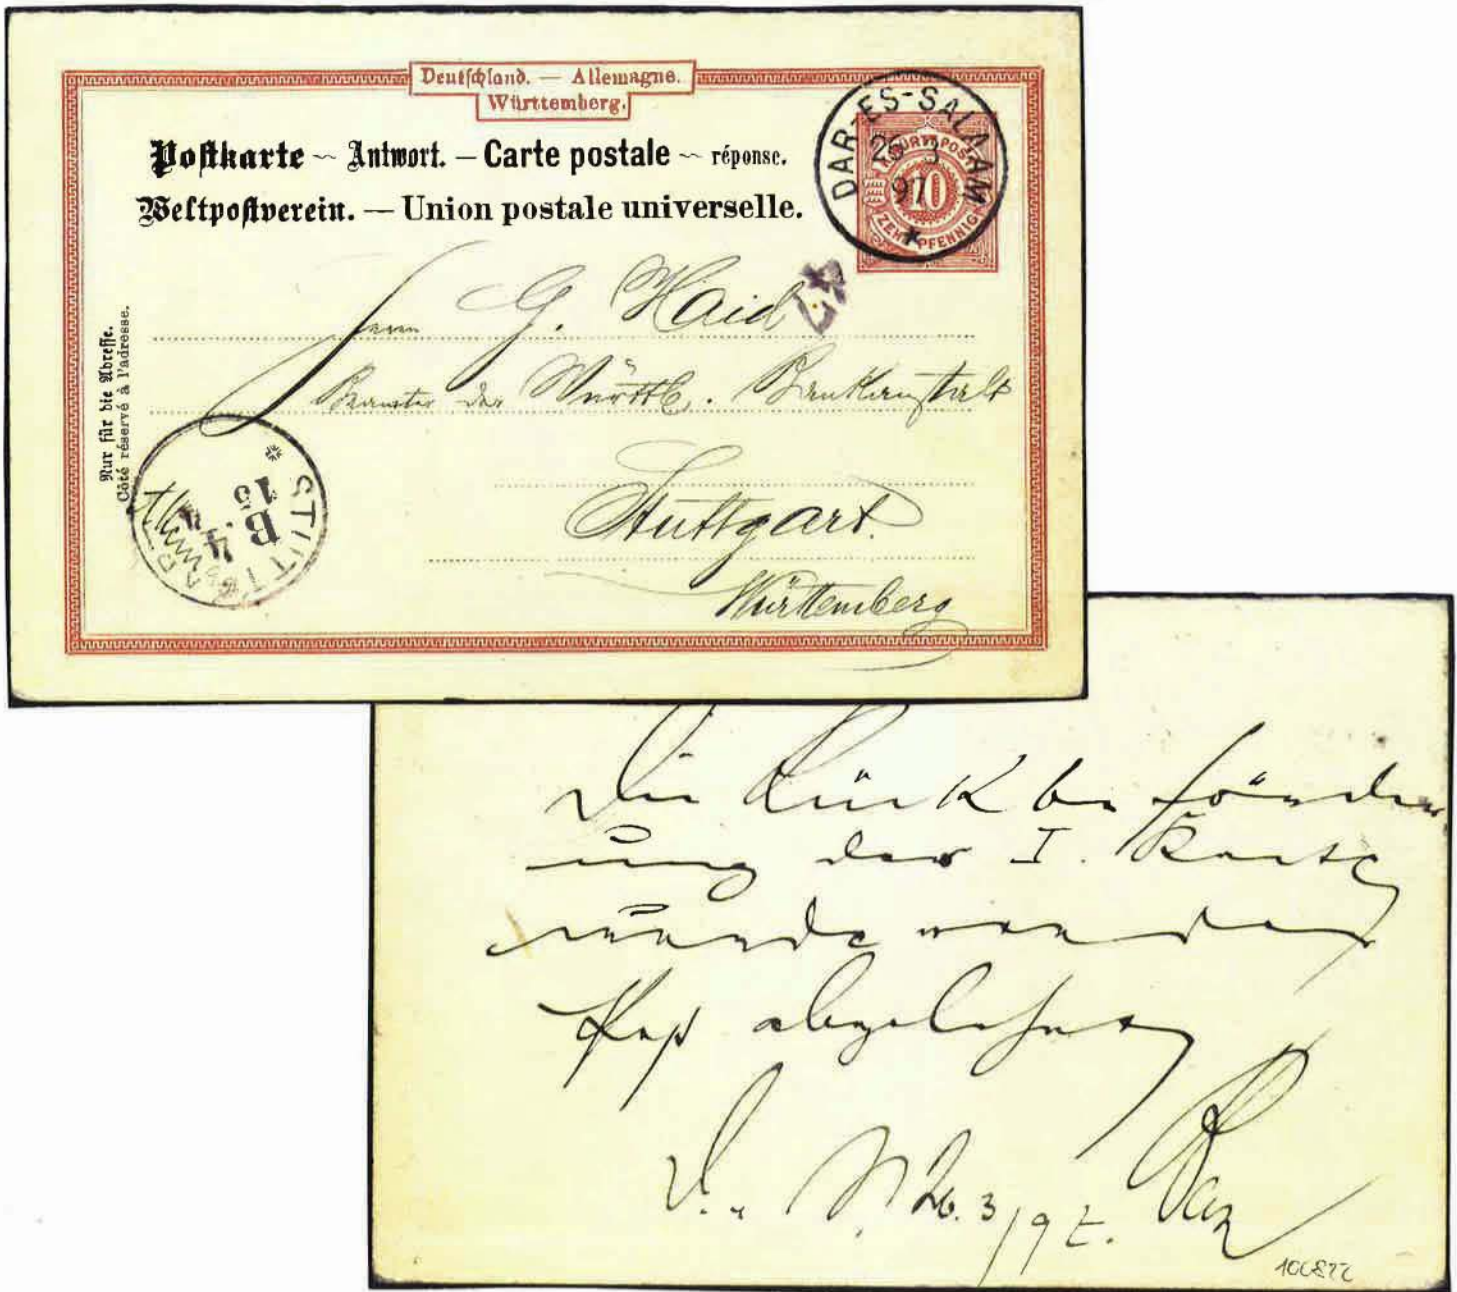 Deutschland. — Allemagne.
Württemberg.
Postkarte ~ Antwort. — Carte postale ~ réponse.
Weltpostverein. — Union postale universelle.
DAR-ES-SALAAM
26 3
97
K. WÜRTT. POST
10
ZEHN PFENNIG
Nur für die Adresse.
Côté réservé à l'adresse.
Herrn G. Haid
Beamter der Württb. Bankanstalt
Stuttgart.
Württemberg
STUTTGART
15
B. 4
Die Rückbeförder
ung der I. Karte
wurde von der
Post abgelehnt
D. 26.3/97.